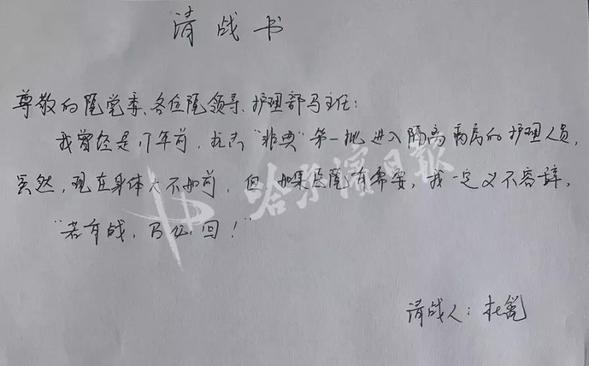 请战书
尊敬的院党委、各位院领导、护理部马主任:
我曾经是17年前,抗击"非典"第一批进入隔离病房的护理人员,
虽然,现在身体大不如前,但,如果医院有需要,我一定义不容辞。
"若有战,乃必回!"
请战人:杜
哈尔滨日报